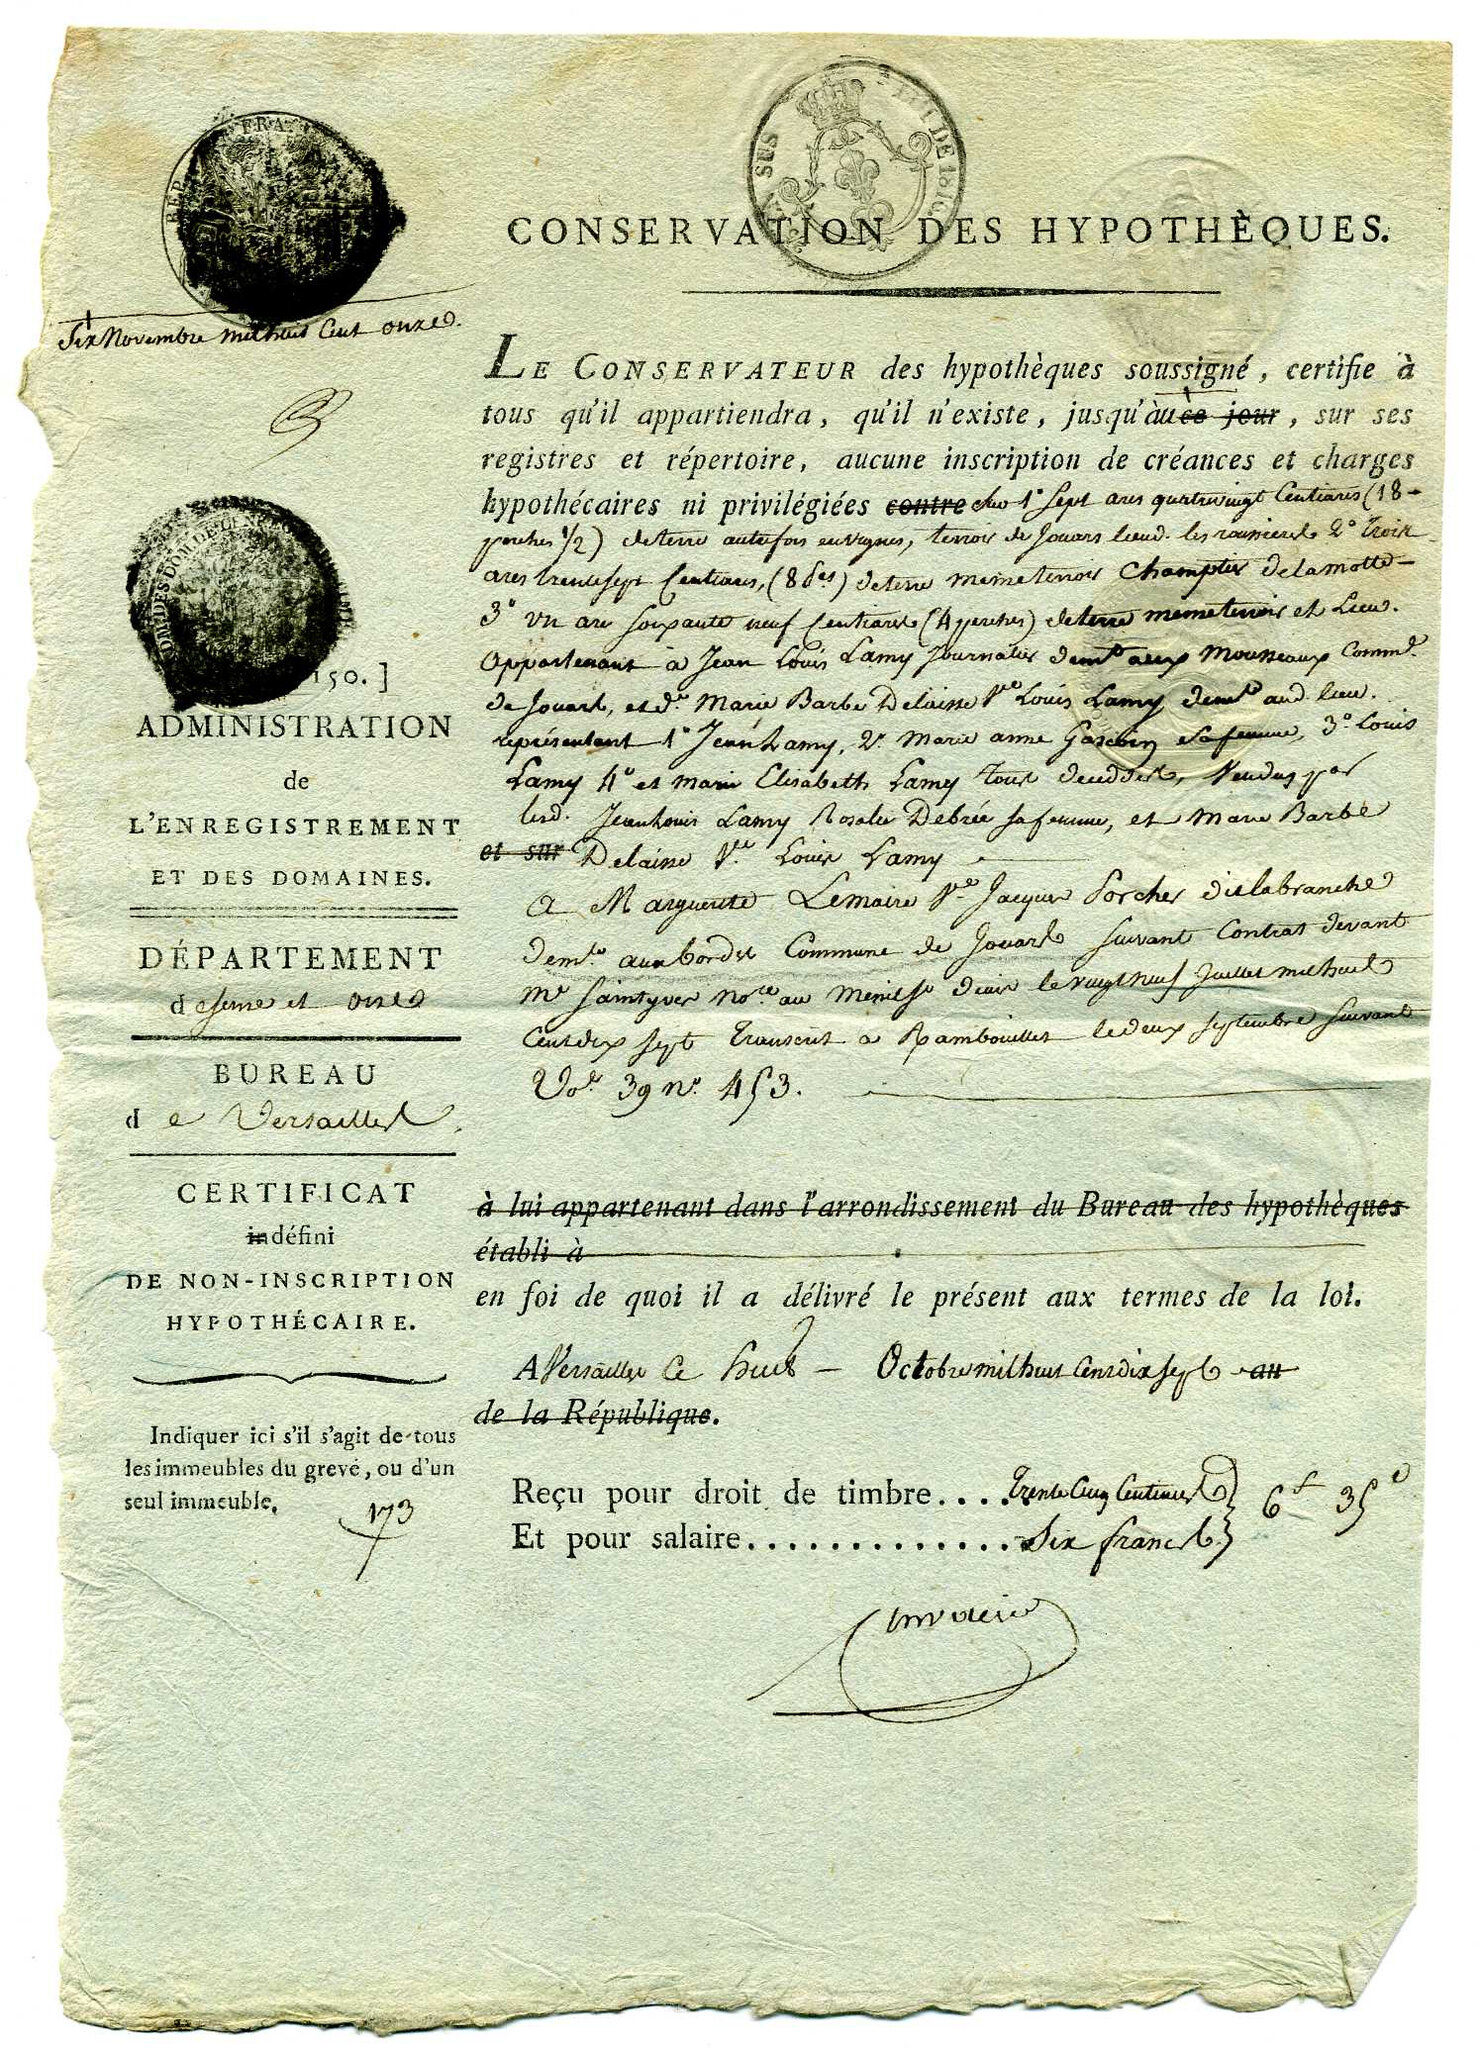 REP. FRA.
SUS DE 1816
CONSERVATION DES HYPOTHÈQUES.
Six Novembre mil huit Cent onze
LE CONSERVATEUR des hypothèques soussigné, certifie à
tous qu'il appartiendra, qu'il n'existe, jusqu'au ce jour, sur ses
registres et répertoire, aucune inscription de créances et charges
hypothécaires ni privilégiées contre 1° Sept ares quatrevingt Centiares (18
perches 1/2) de terre autrefois en vignes, terroir de Jouars lieud. les 2° Trois
ares trente sept Centiares, (8 des) de terre meme terroir Champtier de la motte
3° un are soixante neuf Centiares (4 perches) de terre meme terroir et Lieu.
Appartenant à Jean Louis Lamy Journalier demt. aux Mousseaux Comme.
de Jouars, et de. Marie Barbe Delaisse Ve. Louis Lamy demte aud. lieu.
représentant 1° Jean Lamy, 2° Marie anne sa femme, 3° Louis
Lamy 4° et marie Elisabeth Lamy tous décédés, Vendus par
lesd. Jean Louis Lamy Rosalie Debrée sa femme, et Marie Barbe
et sur Delaisse Ve. Louis Lamy
A Marguerite Lemaire Ve. Jacques Porcher dit labranche
demte. aux bordes Commune de Jouars suivant Contrat devant
Me Saintyver nore. au Menil St denis le vingt neuf Juillet mil huit
Cent dix sept Transcrit a Rambouillet le deux septembre suivant
Vol. 39 no. 453.
DOM. DES DOM. DE L'EN
150.]
ADMINISTRATION
de
L'ENREGISTREMENT
ET DES DOMAINES.
DÉPARTEMENT
de Seine et Oise
BUREAU
de Versailles
CERTIFICAT
indéfini
DE NON-INSCRIPTION
HYPOTHÉCAIRE.
Indiquer ici s'il s'agit de tous
les immeubles du grevé, ou d'un
seul immeuble.
173
à lui appartenant dans l'arrondissement du Bureau des hypothèques
établi à
en foi de quoi il a délivré le présent aux termes de la loi.
A Versailles Ce huit Octobre mil huit Cent dix sept an
de la République.
Reçu pour droit de timbre.... trente Cinq Centimes } 6f 35c
Et pour salaire.............. Six francs }